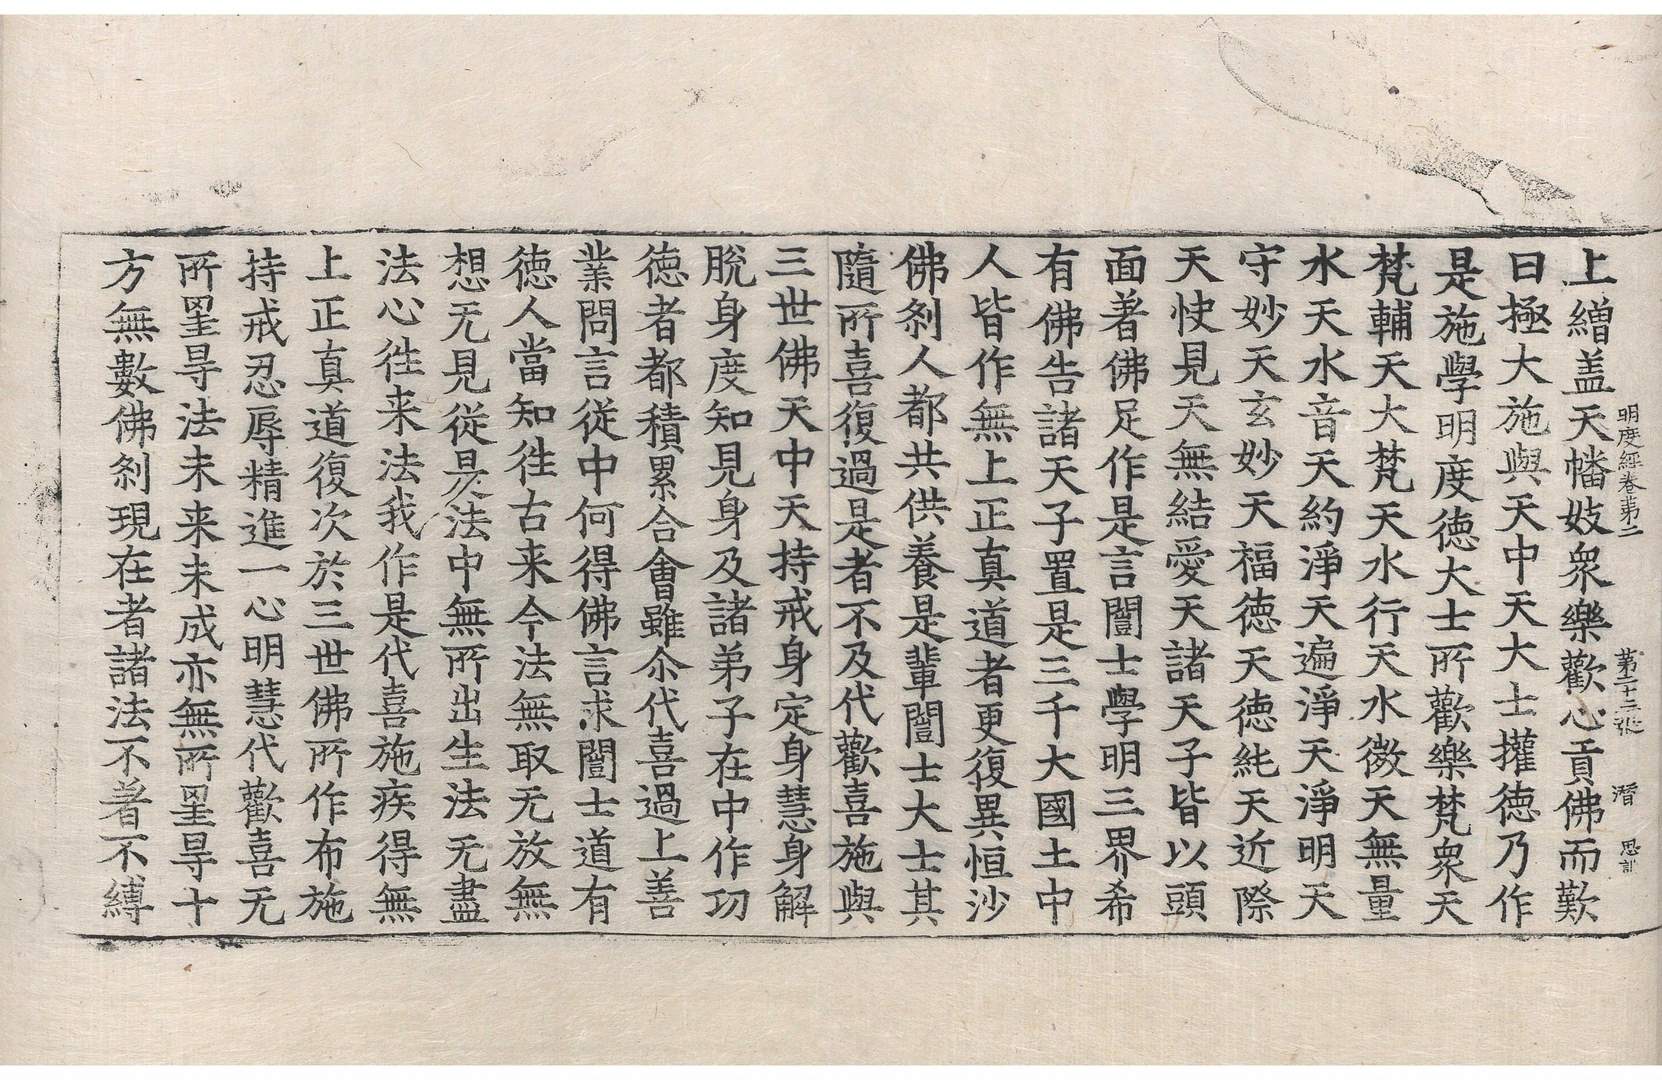 明度經卷苐二　苐二十三张　潛　思訓
上繒盖天幡妓衆樂歡心貢佛而歎
曰極大施與天中天大士㩲德乃作
是施學明度德大士所歡樂梵衆天
梵輔天大梵天水行天水微天無量
水天水音天約淨天遍淨天淨明天
守妙天玄妙天福德天德純天近際
天快見天無結愛天諸天子皆以頭
面著佛足作是言闓士學明三界希
有佛告諸天子置是三千大國土中
人皆作無上正真道者更復異恒沙
佛剎人都共供養是輩闓士大士其
隨所喜復過是者不及代歡喜施與
三世佛天中天持戒身定身慧身解
脫身度知見身及諸弟子在中作功
德者都積累合會雖尒代喜過上善
業問言從中何得佛言求闓士道有
德人當知往古来今法無取无放無
想无見從是法中無所出生法无盡
法心往来法我作是代喜施疾得無
上正真道復次於三世佛所作布施
持戒忍辱精進一心明慧代歡喜无
所罣㝵法未来未成亦無所罣㝵十
方無數佛剎現在者諸法不著不縛